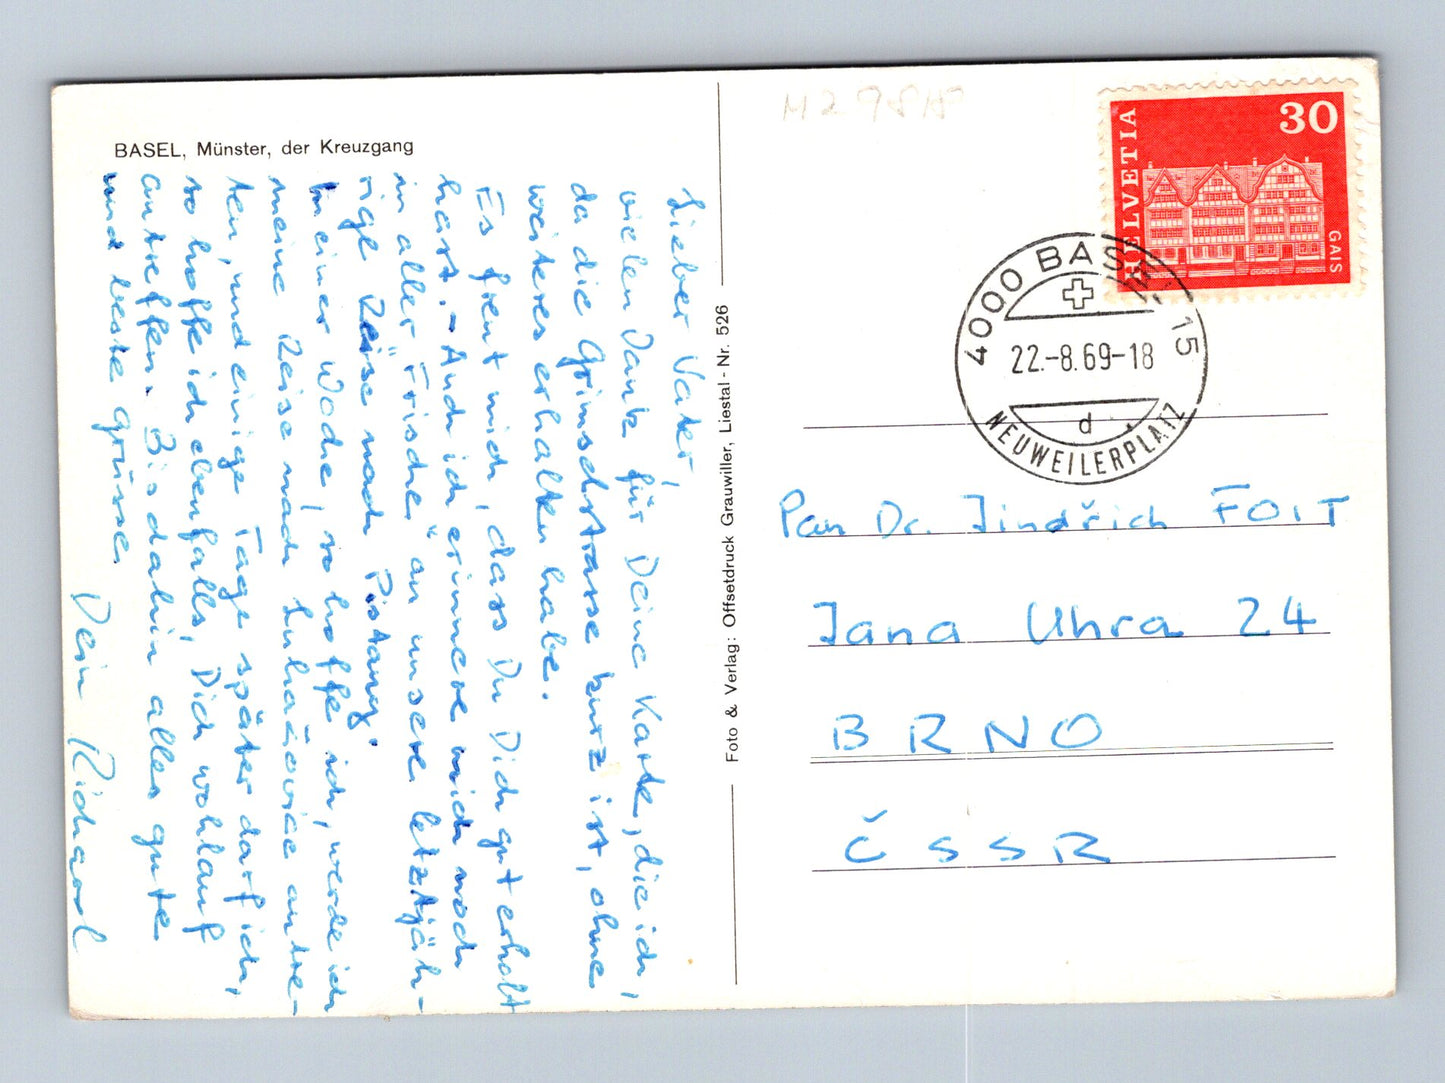 BASEL, Münster, der Kreuzgang
Lieber Vater,
vielen Dank für Deine Karte, die ich,
da die Grimselstrasse kurz ist, ohne
weiteres erhalten habe.
Es freut mich, dass Du Dich gut erholt
hast. - Auch ich erinnere mich noch
in aller "Frische" an unsere letztjäh-
rige Reise nach Pistany.
In einer Woche, so hoffe ich, werde ich
meine Reise nach Luhačovice antre-
ten, und einige Tage später darf ich,
so hoffe ich ebenfalls, Dich wohlauf
antreffen. Bis dahin alles gute
und beste grüsse
Dein Richard
Foto & Verlag: Offsetdruck Grauwiller, Liestal - Nr. 526
HELVETIA
30
GAIS
4000 BASEL 15
22.-8.69-18
d
NEUWEILERPLATZ
Pan Dr. Jindřich FOIT
Jana Uhra 24
BRNO
ČSSR